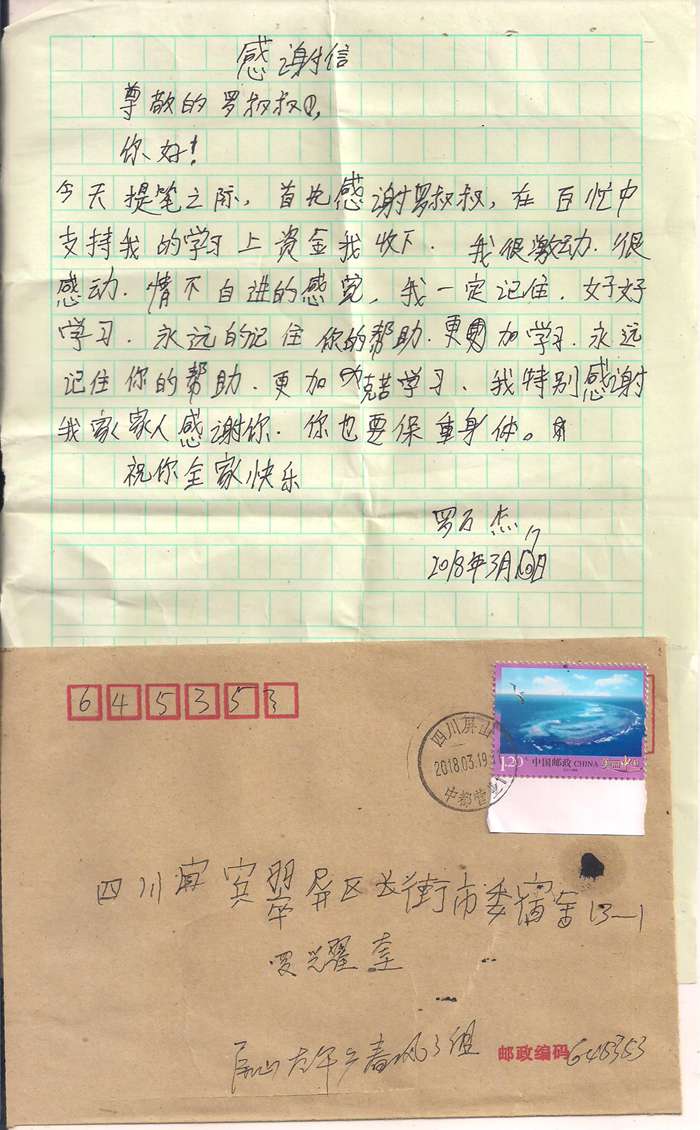 感谢信
尊敬的罗叔叔
你好！
今天提笔之际，首先感谢罗叔叔，在百忙中
支持我的学习上资金我收下．我很激动．很
感动．情不自进的感觉，我一定记住．好好
学习．永远的记住你的帮助．更加学习．永远
记住你的帮助．更加克苦学习、我特别感谢
我家家人感谢你．你也要保重身体。
祝你全家快乐
罗万杰
2018年3月17日
645353
四川屏山
2018.03.19
中都营业
1.20 中国邮政 CHINA
四川宜宾翠屏区长街市委宿舍13—1
罗耀奎
屏山 春风3组
邮政编码 645353